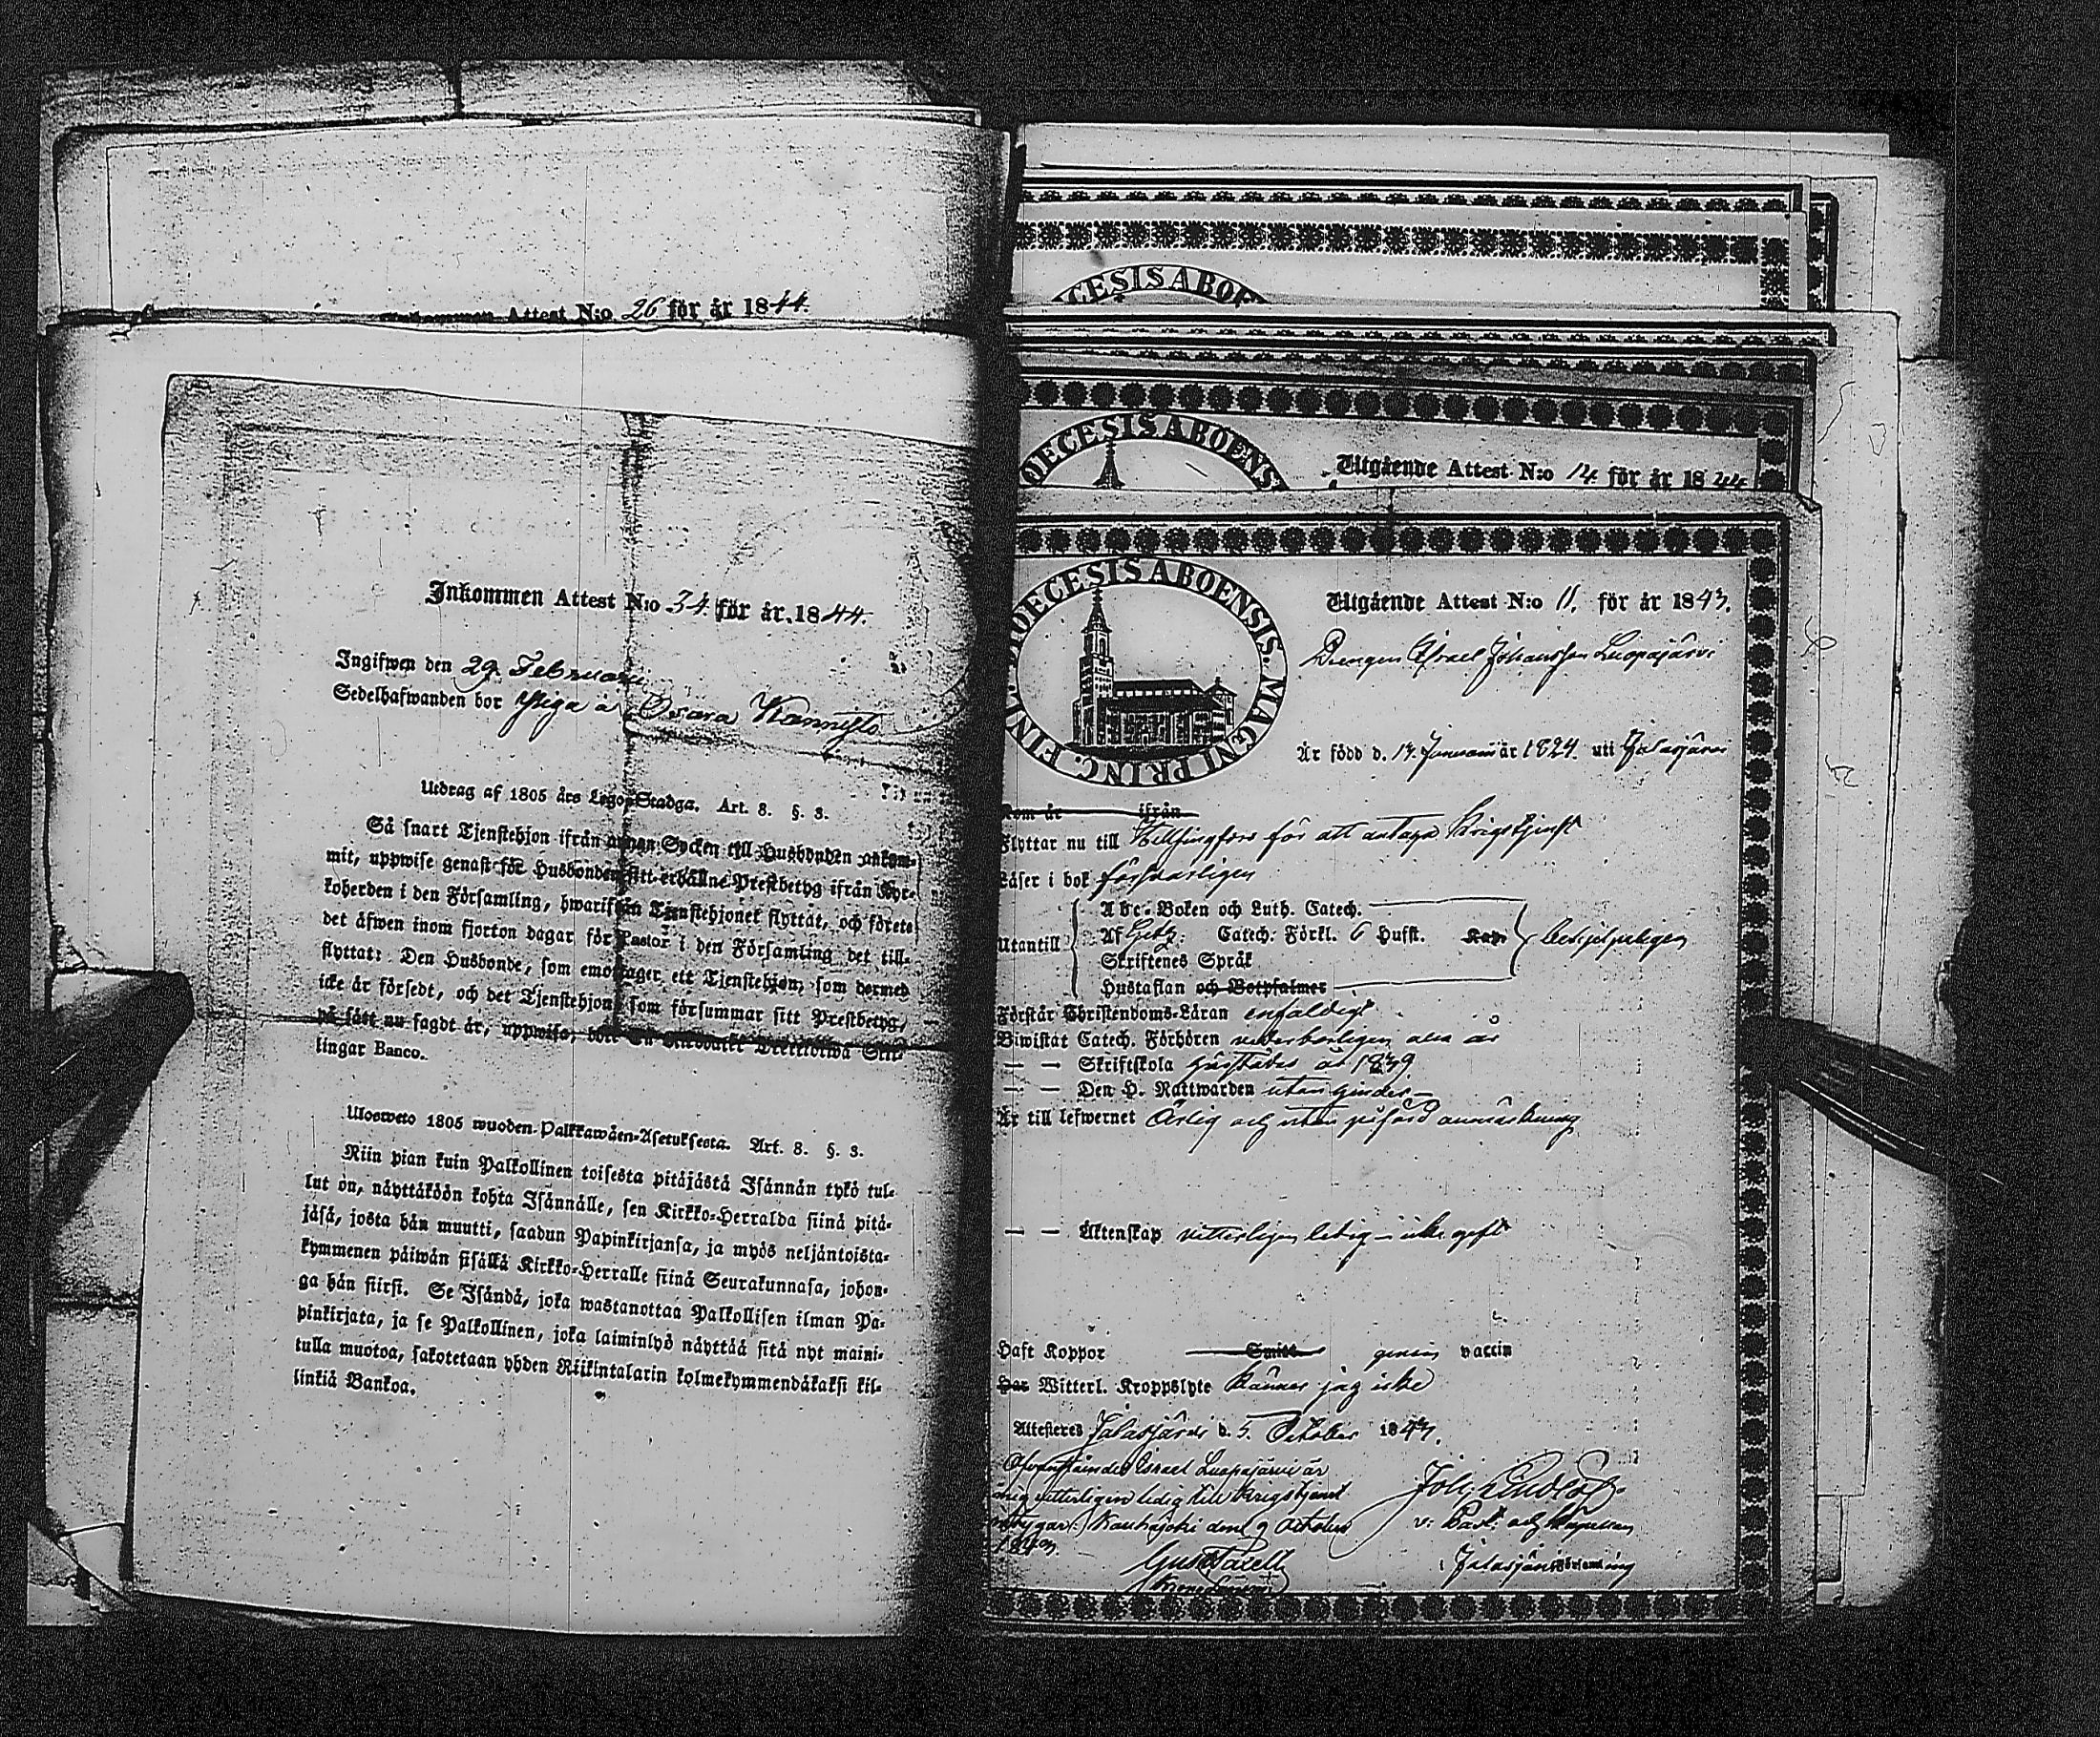 Attest N:o 26 för år 1844.
Inkommen Attest N:o 34. för år 1844.
Ingifwen den 29. Februarii
Sedelhafwanden bor Piga à Osara Kannisto
Utdrag af 1805 års Lego-Stadga. Art. 8. §. 3.
Så snart Tjenstehjon ifrån annan Socken till Husbonden ankom-
mit, uppwise genast för Husbonden sitt erhållne Prestbetyg ifrån Kyr-
koherden i den Församling, hwarifrån Tjenstehjonet flyttat, och förete
det äfwen inom fjorton dagar för Pastor i den Församling det till-
flyttat: Den Husbonde, som emottager ett Tjenstehjon, som dermed
icke är försedt, och det Tjenstehjon som försummar sitt Prestbetyg,
på sätt nu sagdt är, uppwisa, böte En Riksdaler Trettiotwå Skil-
lingar Banco.
Ulosweto 1805 wuoden Palkkawäen-Asetuksesta. Art. 8. §. 3.
Niin pian kuin Palkollinen toisesta pitäjästä Isännän tykö tul-
lut on, näyttäköön kohta Isännälle, sen Kirkko-Herralda siinä pitä-
jäsä, josta hän muutti, saadun Papinkirjansa, ja myös neljäntoista-
kymmenen päiwän sisällä Kirkko-Herralle siinä Seurakunnasa, johon-
ga hän siirsi. Se Isändä, joka wastanottaa Palkollisen ilman Pa-
pinkirjata, ja se Palkollinen, joka laiminlyö näyttää sitä nyt maini-
tulla muotoa, sakotetaan yhden Riikintalarin kolmekymmendäkaksi kil-
linkiä Bankoa.
CESIS ABOE
OECESIS ABOENS
Utgående Attest N:o 14. för år 1844
DIOECESIS ABOENSIS. MAGNI PRINC. FINL.
Utgående Attest N:o 11. för år 1843.
Drengen Israel Johansson Luopajärvi
Är född d. 17. Januari år 1824. uti Jalasjärvi
Kom år ifrån
Flyttar nu till Helsingfors för att antaga Krigstjenst
Läser i bok försvarligen
Abc-Boken och Luth. Catech.
Utantill Af Catech. Förkl. 6 Hufst. Kap.
Skriftenes Språk
Hustaflan och Botpsalmer
Förstår Christendoms-Läran enfaldigt
Biwistat Catech. Förhören vederbörligen alla år
— — Skriftskola år 1839
— — Den H. Nattwarden utan hinder
Är till lefwernet Ärlig och utan påförd anmärkning
— — Äktenskap vitterligen ledig – icke gift
Haft Koppor Smitt. genom vaccin
Har Witterl. Kroppslyte känner jag icke
Attesteres Jalasjärvi d. 5. October 1843.
Ofvanstående Israel Luopajärvi är
mig vitterligen ledig till Krigstjenst
betygar: Kauhajoki den 9 October
1843.
Joh. Lindlöf
v: Past: och Kapellan
i Jalasjärvi Församling